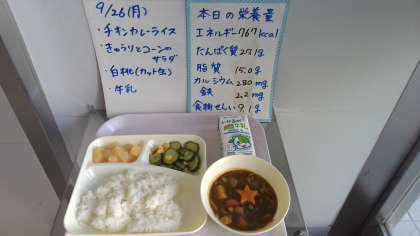 9/26(月)
・チキンカレーライス
・きゅうりとコーンの
サラダ
・白桃(カット缶)
・牛乳
本日の栄養量
エネルギー767kcal
たんぱく質27.1g
脂質 15.0g
カルシウム 280mg
鉄 2.2mg
食物せんい 9.1g
牛乳